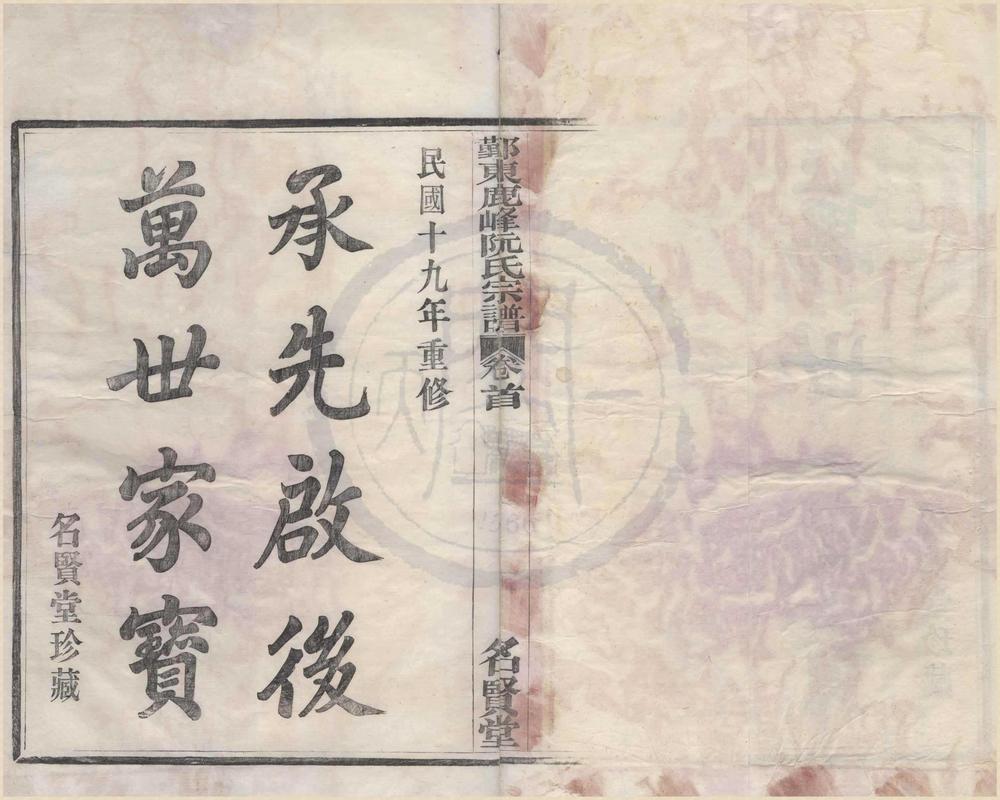 鄞東鹿峰阮氏宗譜 卷首
名賢堂
民國十九年重修
承先啟後
萬世家寶
名賢堂珍藏